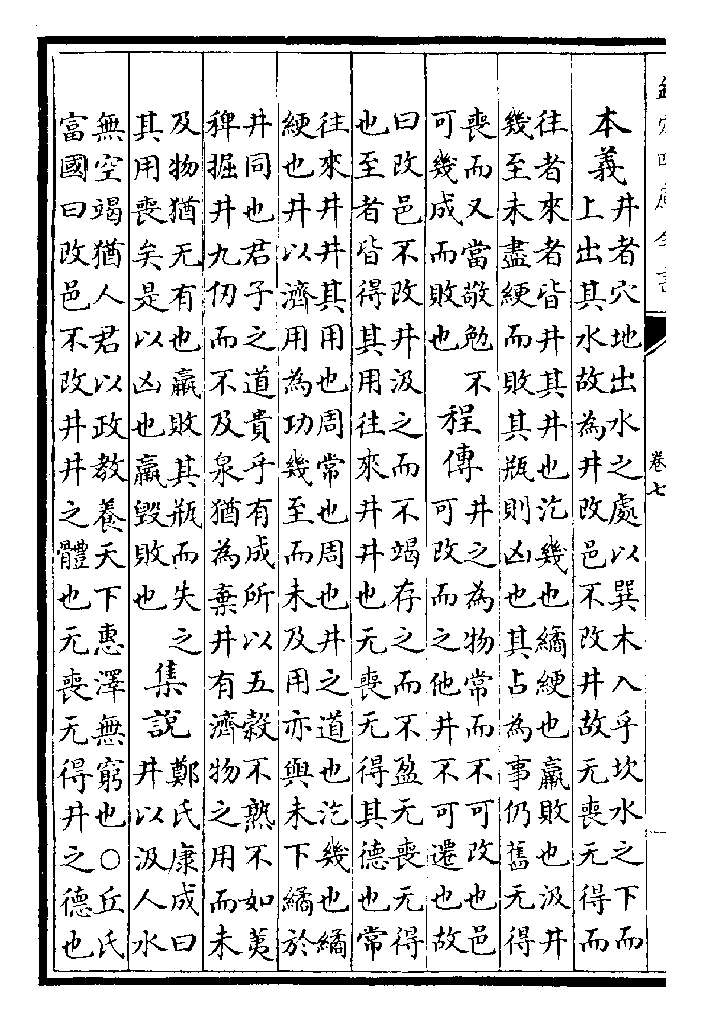 欽定四庫全書
卷七
本義
井者穴地出水之處以巽木入乎坎水之下而
上出其水故為井改邑不改井故无喪无得而
往者來者皆井其井也汔幾也繘綆也羸敗也汲井
幾至未盡綆而敗其瓶則凶也其占為事仍舊无得
喪而又當敬勉不
可幾成而敗也
程傳
井之為物常而不可改也邑
可改而之他井不可遷也故
曰改邑不改井汲之而不竭存之而不盈无喪无得
也至者皆得其用往來井井也无喪无得其德也常
往來井井其用也周常也周也井之道也汔幾也繘
綆也井以濟用為功幾至而未及用亦與未下繘於
井同也君子之道貴乎有成所以五穀不熟不如荑
稗掘井九仞而不及泉猶為棄井有濟物之用而未
及物猶无有也羸敗其瓶而失之
其用喪矣是以凶也羸毀敗也
集說
鄭氏康成曰
井以汲人水
無空竭猶人君以政教養天下惠澤無窮也○丘氏
富國曰改邑不改井井之體也无喪无得井之德也